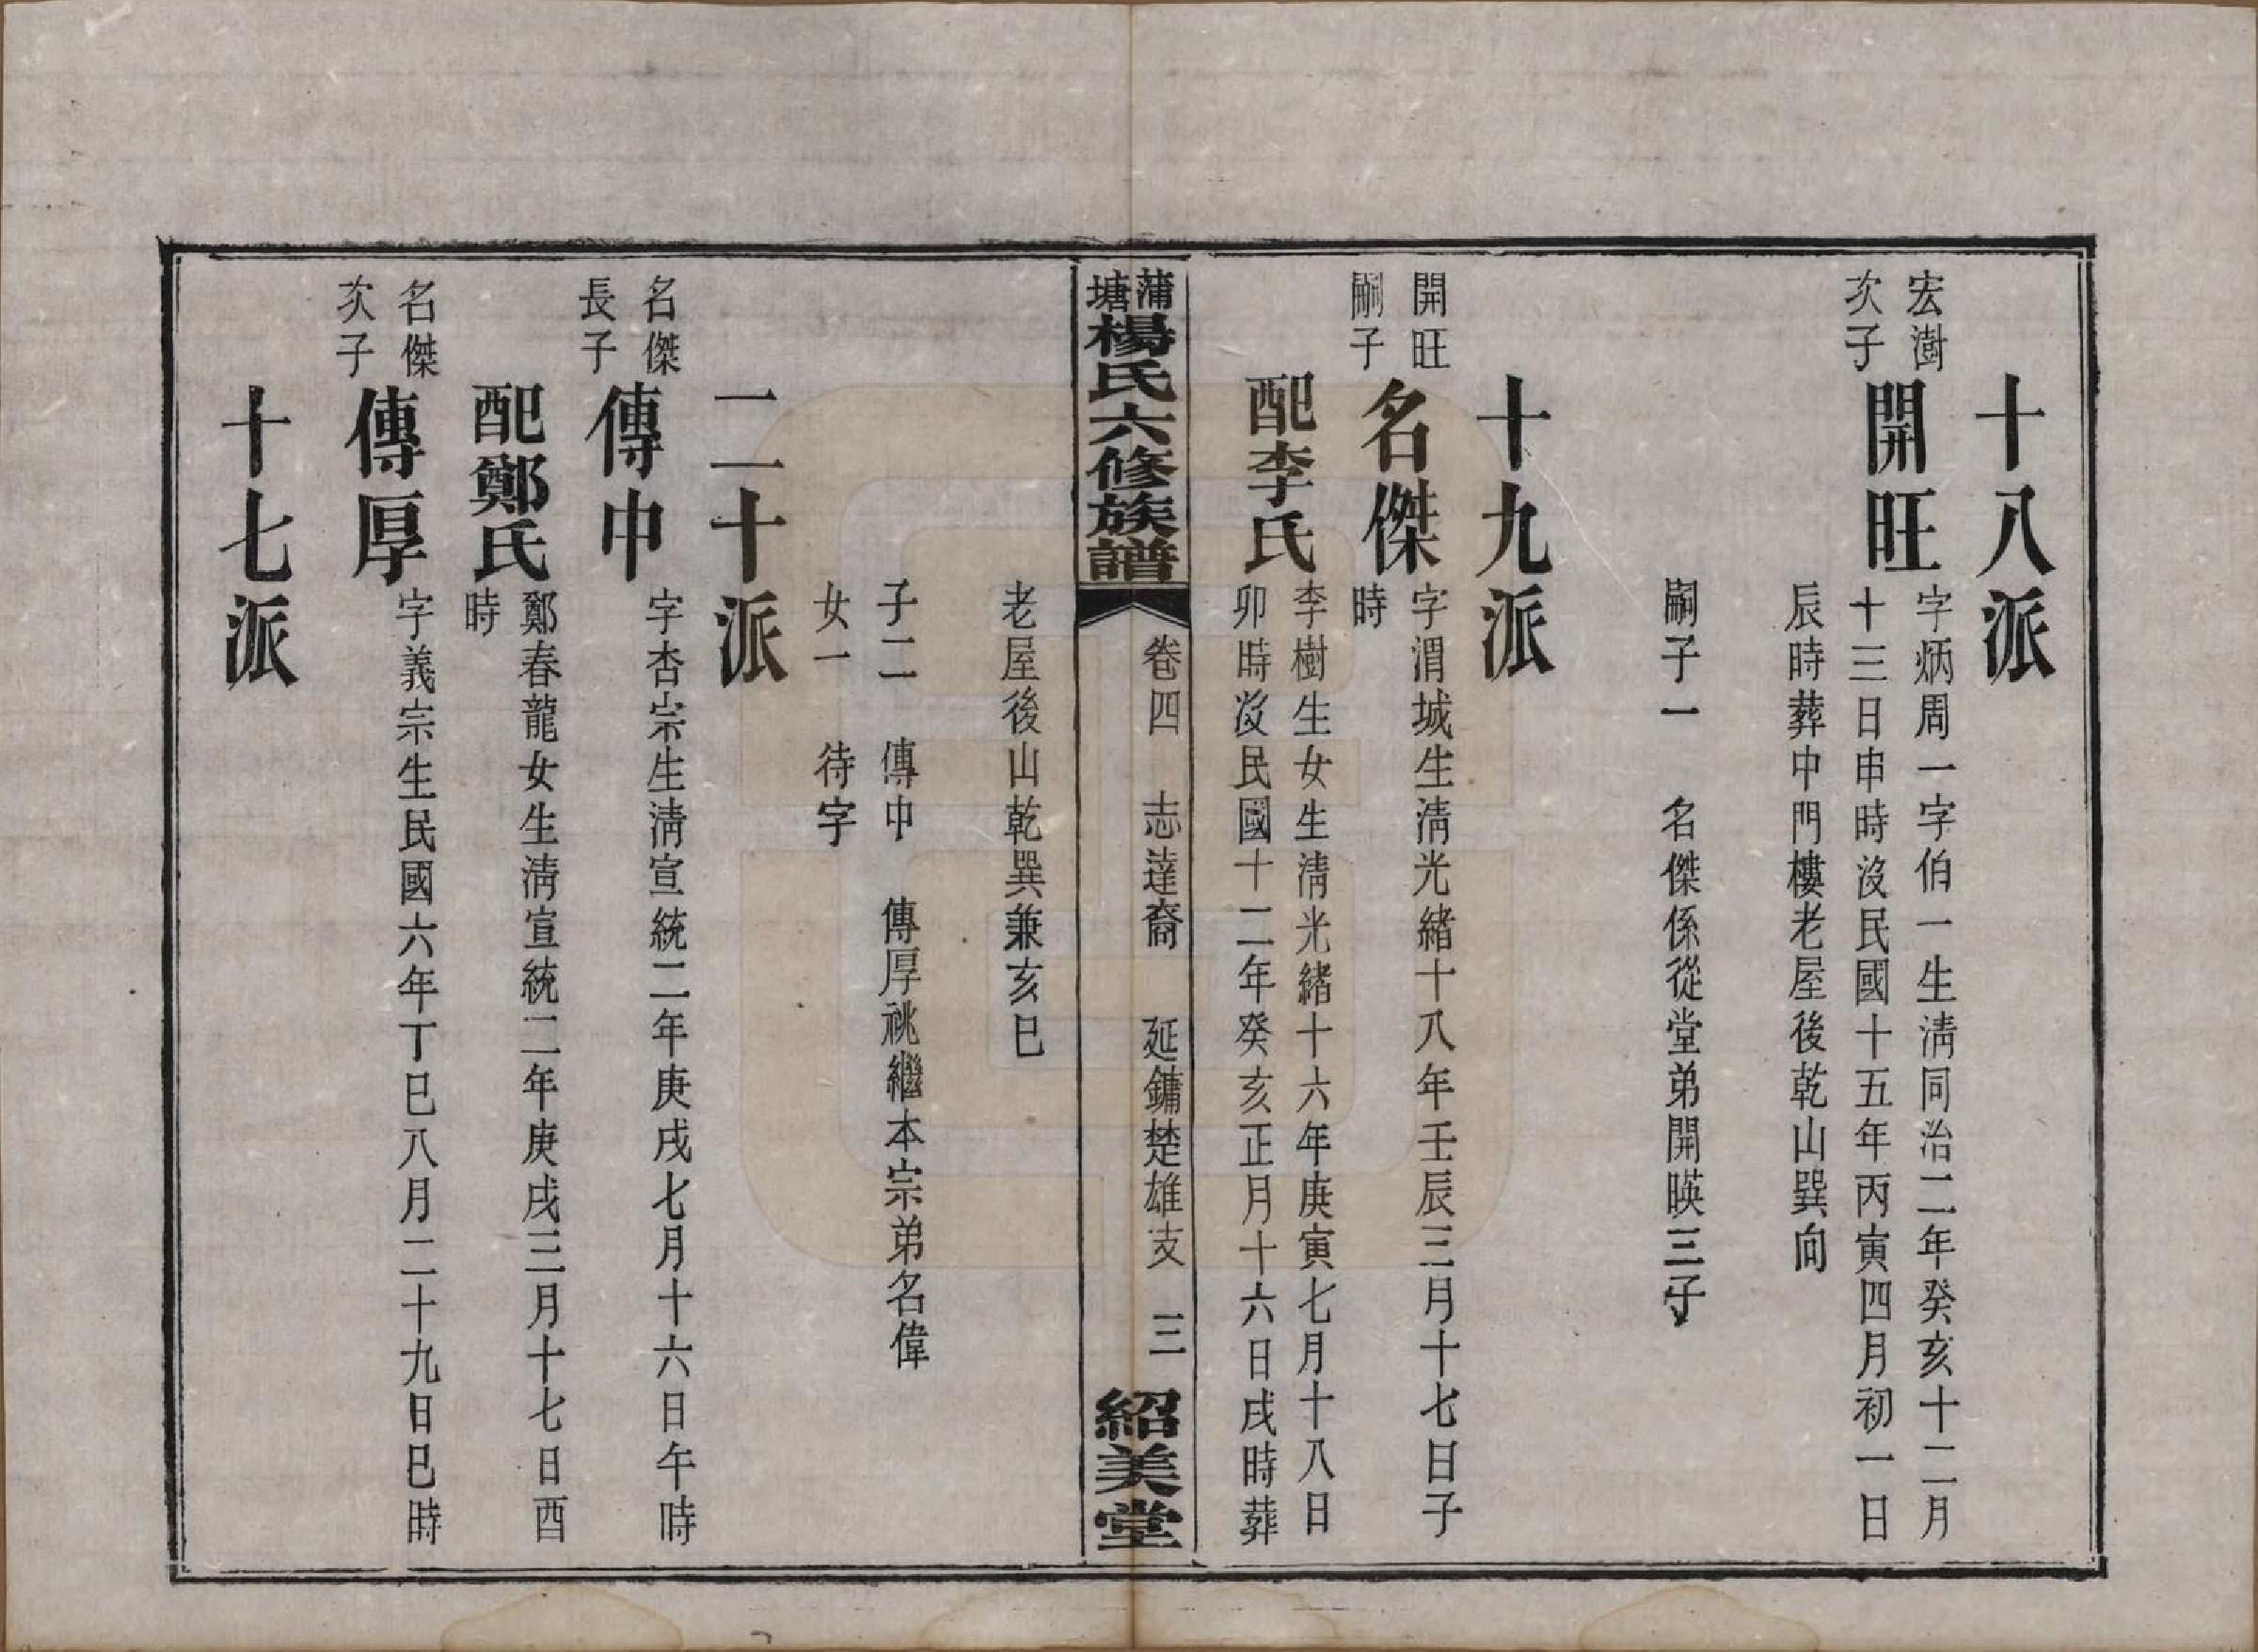 十八派
宏澍
次子
開旺
字炳周一字伯一生淸同治二年癸亥十二月
十三日申時沒民國十五年丙寅四月初一日
辰時葬中門樓老屋後乾山巽向
嗣子一　名傑係從堂弟開暎三子
十九派
開旺
嗣子
名傑
字渭城生淸光緒十八年壬辰三月十七日子
時
配李氏
李樹生女生淸光緒十六年庚寅七月十八日
卯時沒民國十二年癸亥正月十六日戌時葬
蒲塘楊氏六修族譜
卷四　志達裔　延鏞楚雄支　三
紹美堂
老屋後山乾巽兼亥巳
子二　傳中　傳厚祧繼本宗弟名偉
女一　待字
二十派
名傑
長子
傳中
字杏宗生淸宣統二年庚戌七月十六日午時
配鄭氏
鄭春龍女生淸宣統二年庚戌三月十七日酉
時
名傑
次子
傳厚
字義宗生民國六年丁巳八月二十九日巳時
十七派